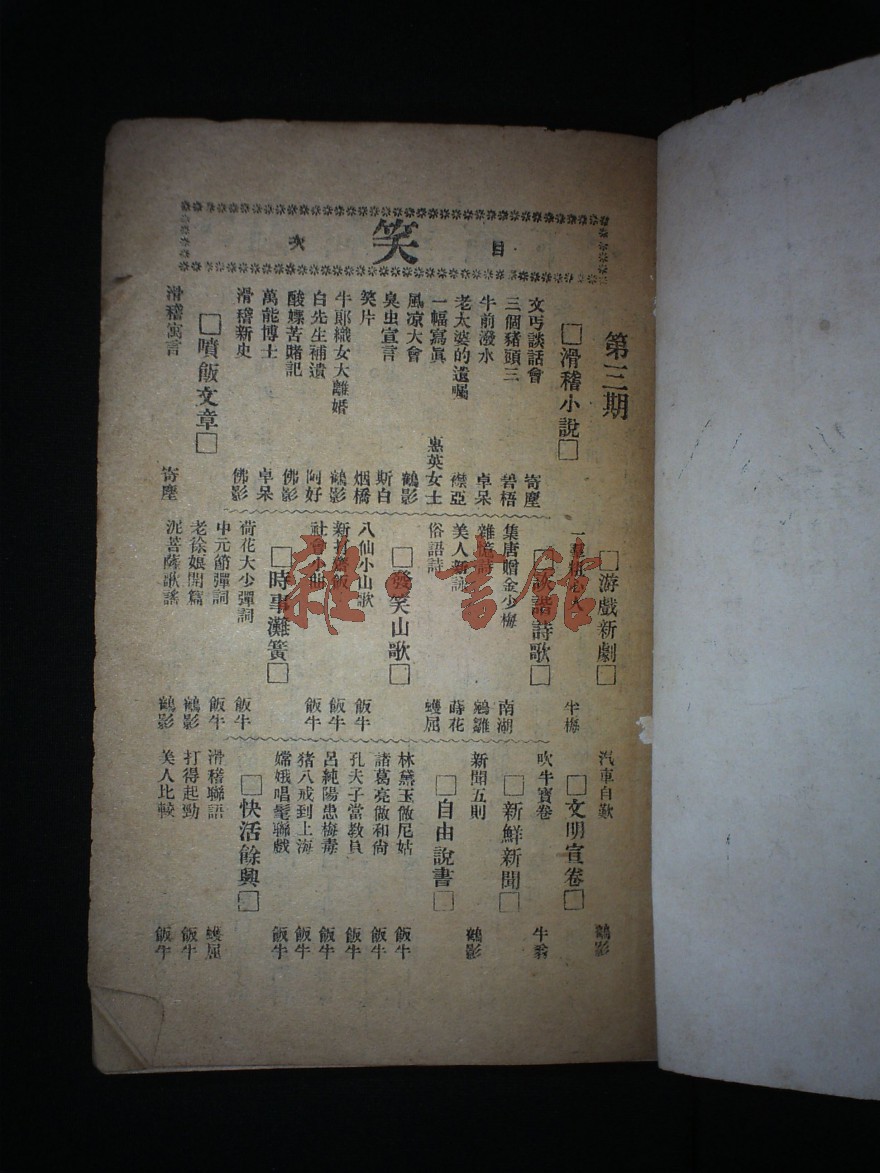 目 笑 次
第三期
□滑稽小說□
文丐談話會 寄塵
三個豬頭三 碧梧
牛前潑水 卓呆
老太婆的遺囑 襟亞
一幅寫眞 惠英女士
風凉大會 鶴影
臭虫宣言 斯白
笑片 烟橋
牛郎織女大離婚 鶴影
白先生補遺 阿好
酸嫖苦賭記 佛影
萬能博士 卓呆
滑稽新史 佛影
□噴飯文章□
滑稽寓言 寄塵
□游戲新劇□
□詼諧詩歌□
集唐贈金少梅 南湖
雜言詩 鵷雛
美人新詠 蒔花
俗語詩 蠖屈
□發笑山歌□
八仙小山歌 飯牛
新打齋飯 飯牛
飯牛
□時事灘簧□
荷花大少彈詞 飯牛
中元節彈詞 飯牛
老徐娘開篇 鶴影
泥菩薩歌謠 鶴影
汽車自歎 鶴影
□文明宣卷□
吹牛寶卷 牛翁
□新鮮新聞□
新聞五則 鶴影
□自由說書□
林黛玉做尼姑 飯牛
諸葛亮做和尙 飯牛
孔夫子當敎員 飯牛
呂純陽患梅毒 飯牛
猪八戒到上海 飯牛
嫦娥唱髦聯戲 飯牛
□快活餘興□
滑稽聯語 蠖屈
打得起勁 飯牛
美人比較 飯牛
雜·書館